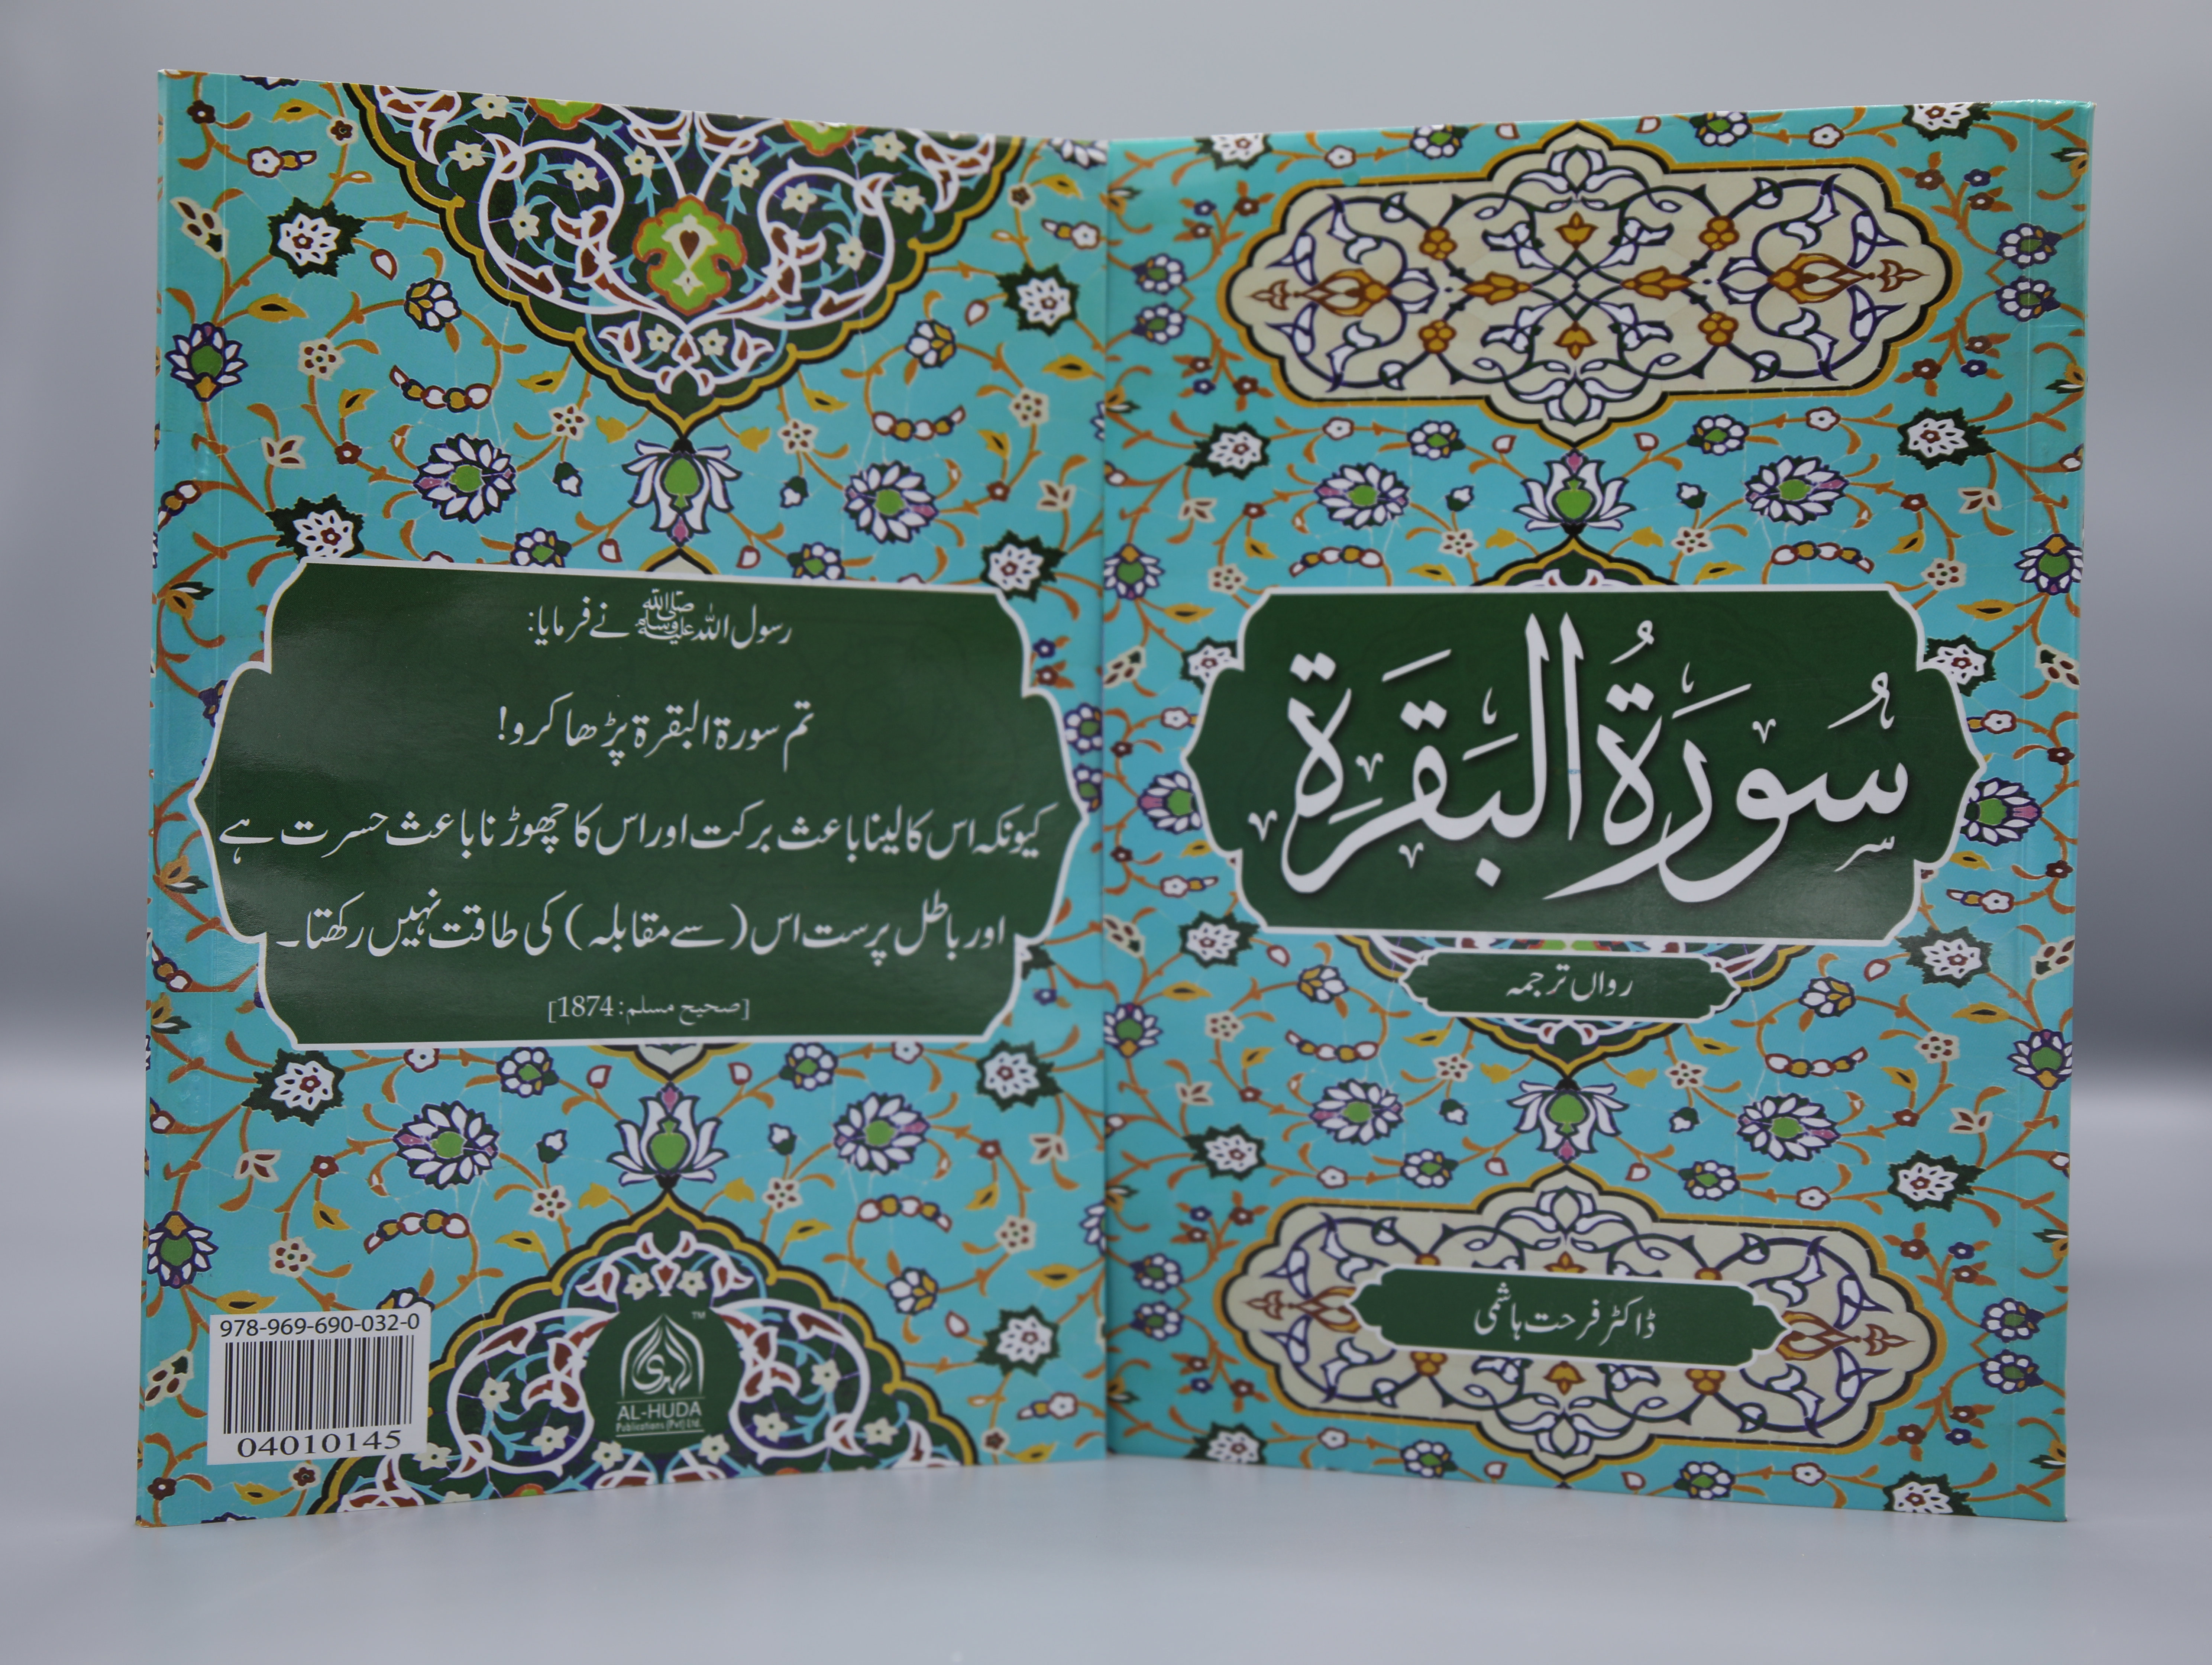 سُورَةُ البَقَرَةِ
رواں ترجمہ
ڈاکٹر فرحت ہاشمی
رسول اللہ ﷺ نے فرمایا:
تم سورة البقرة پڑھا کرو!
کیونکہ اس کا لینا باعث برکت اور اس کا چھوڑنا باعث حسرت ہے
اور باطل پرست اس (سے مقابلہ) کی طاقت نہیں رکھتا۔
[صحیح مسلم: 1874]
978-969-690-032-0
04010145
الهدى
TM
AL-HUDA
Publications (Pvt) Ltd.